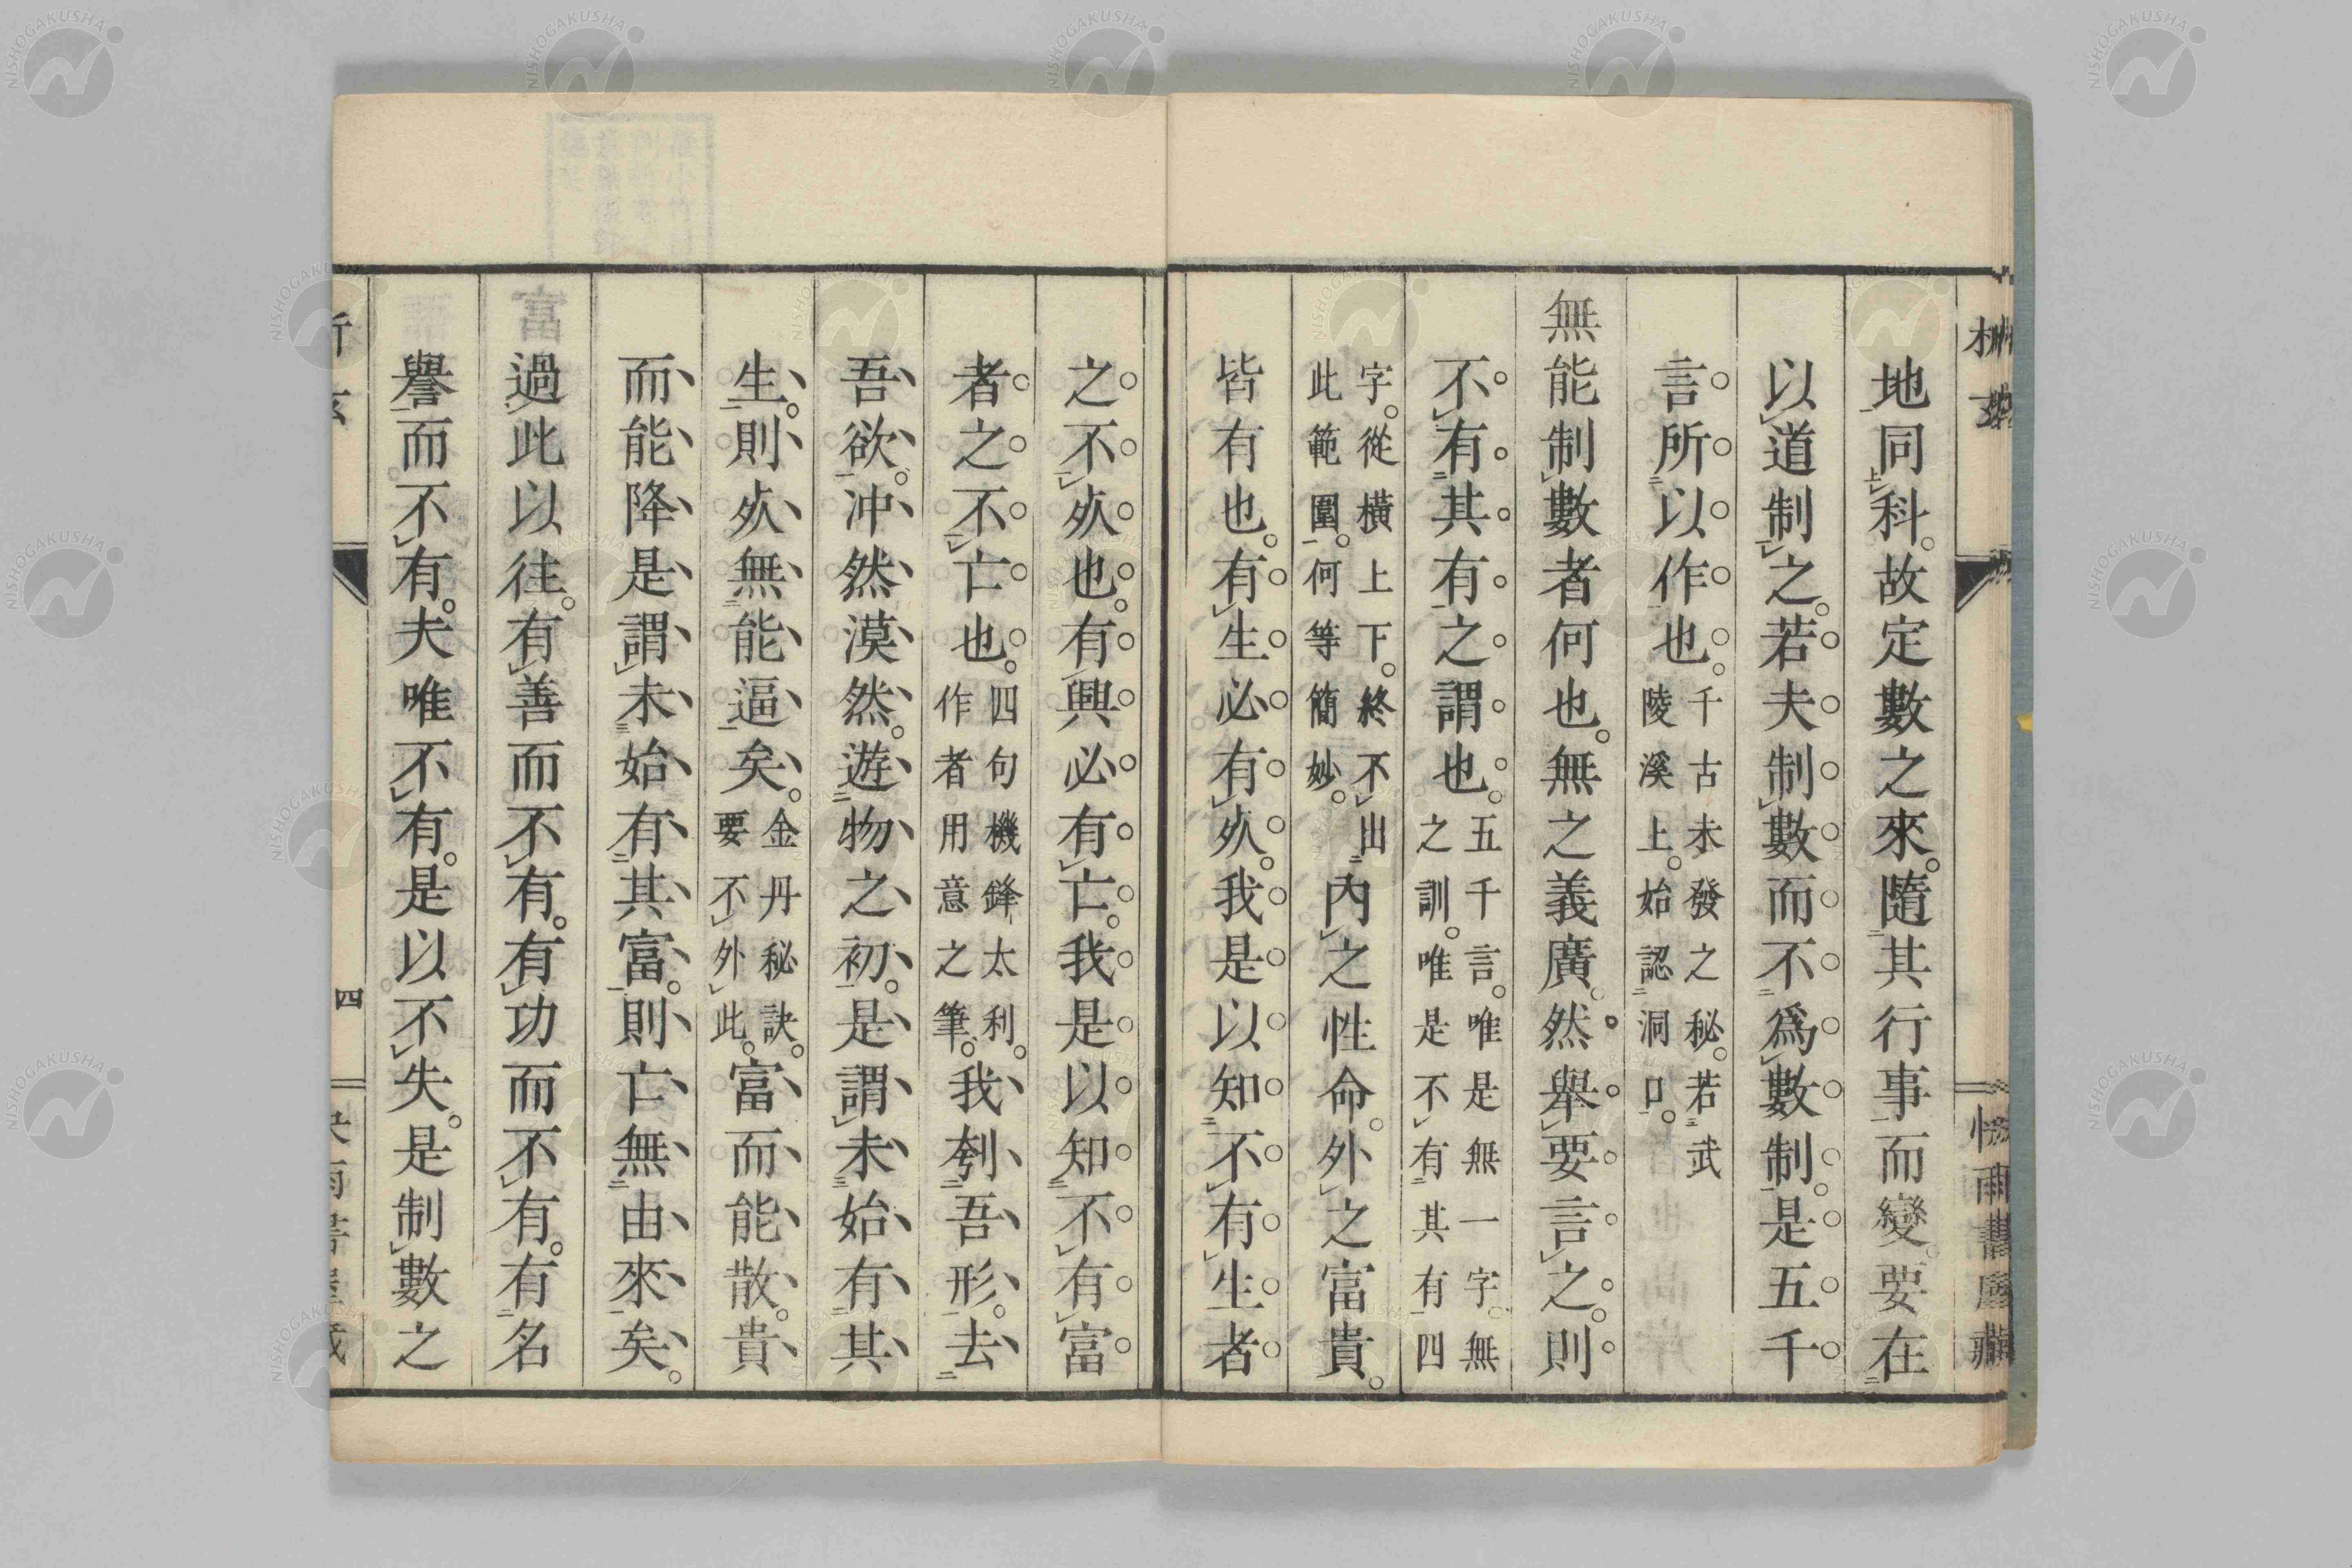 地同科。故定數之來。隨其行事而變。要在
以道制之。若夫制數而不爲數制。是五千
言所以作也。千古未發之秘。若武
陵溪上。始認洞口。
無能制數者何也。無之義廣。然舉要言之。則
不有其有之謂也。五千言。唯是無一字。無
之訓。唯是不有其有四
字。從橫上下。終不出
此範圍。何等簡妙。內之性命。外之富貴。
皆有也。有生必有㱙。我是以知不有生者
之不㱙也。有興必有亡。我是以知不有富
者之不亡也。四句機鋒太利。
作者用意之筆。我刳吾形。去
吾欲。冲然漠然。遊物之初。是謂未始有其
生。則㱙無能逼矣。金丹秘訣。
要不外此。富而能散。貴
而能降。是謂未始有其富。則亡無由來矣。
過此以往。有善而不有。有功而不有。有名
譽而不有。夫唯不有。是以不失。是制數之
四